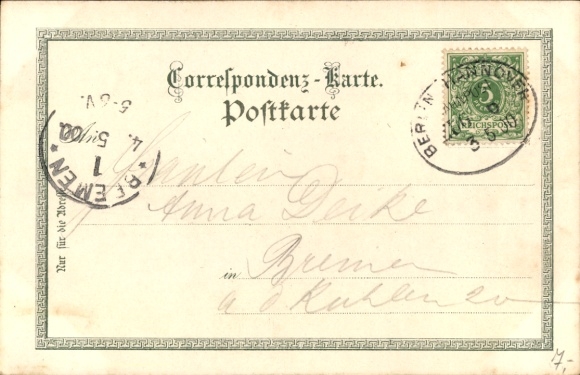 Correspondenz-Karte.
Postkarte
5
REICHSPOST
BERLIN HANNOVER
BREMEN * 1 *
4. 5. 00.
5-6 V.
Nur für die Adresse
An
Fräulein
Anna Deike
in Bremen
a. d. Kuhlen 20
7,-